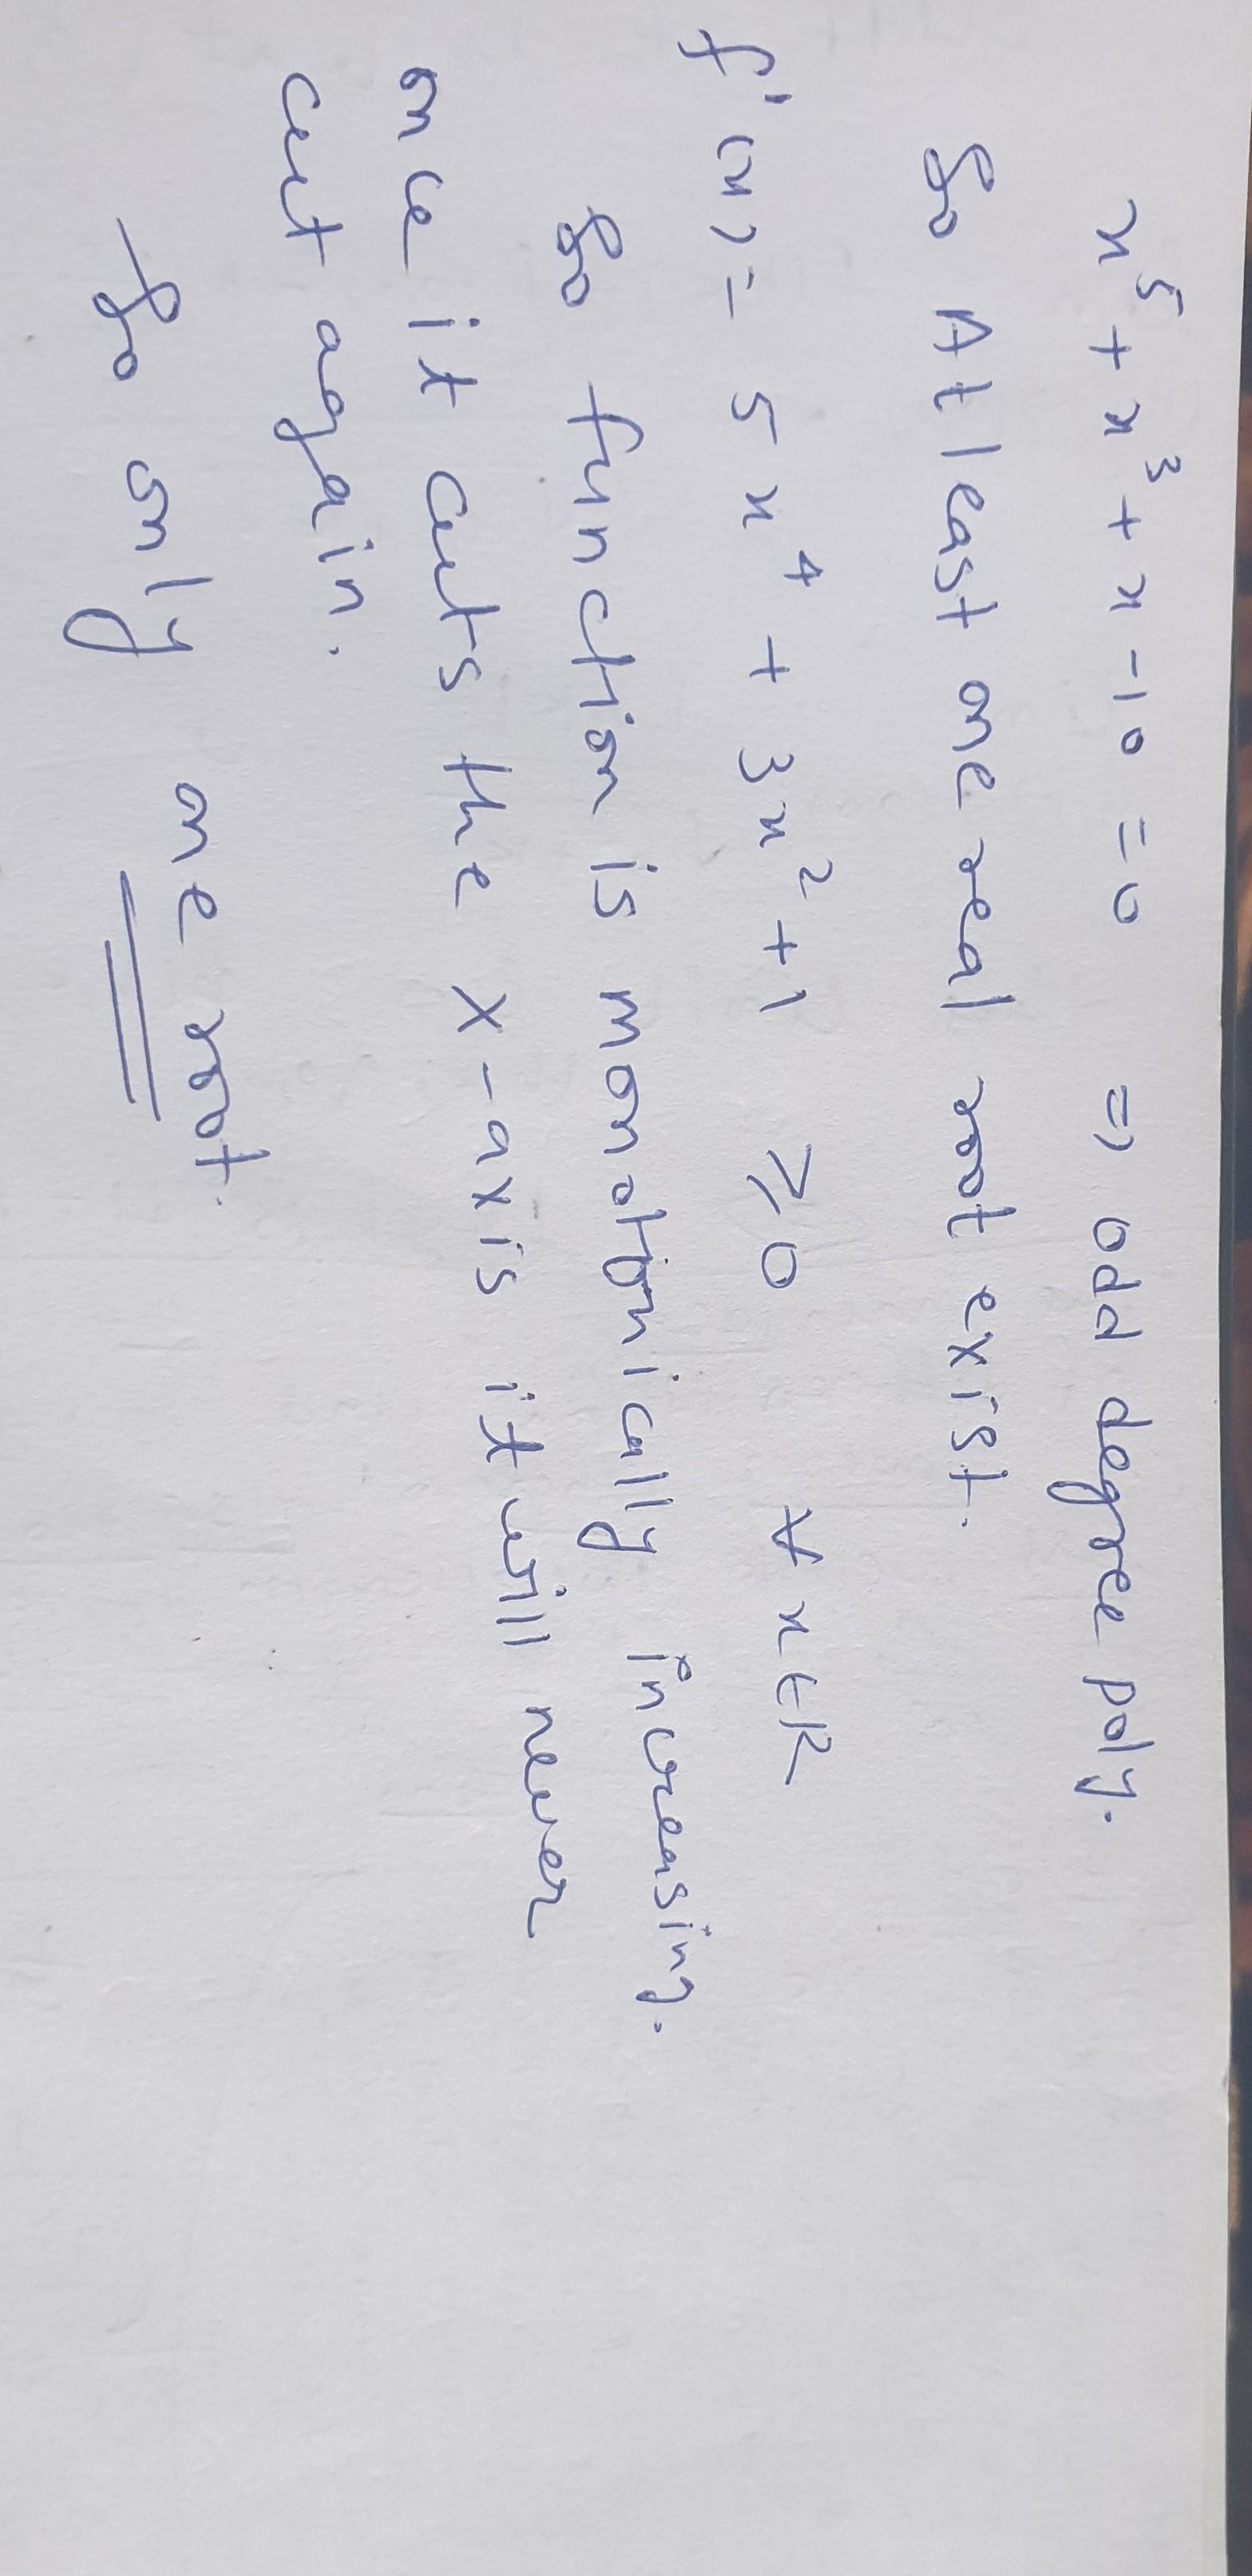 x⁵ + x³ + x - 10 = 0 ⇒ odd degree poly.
So At least one real root exist.
f'(x) = 5x⁴ + 3x² + 1 ≥ 0 ∀ x ∈ R
So function is monotionically increasing.
once it cuts the x-axis it will never
cut again.
So only one root.